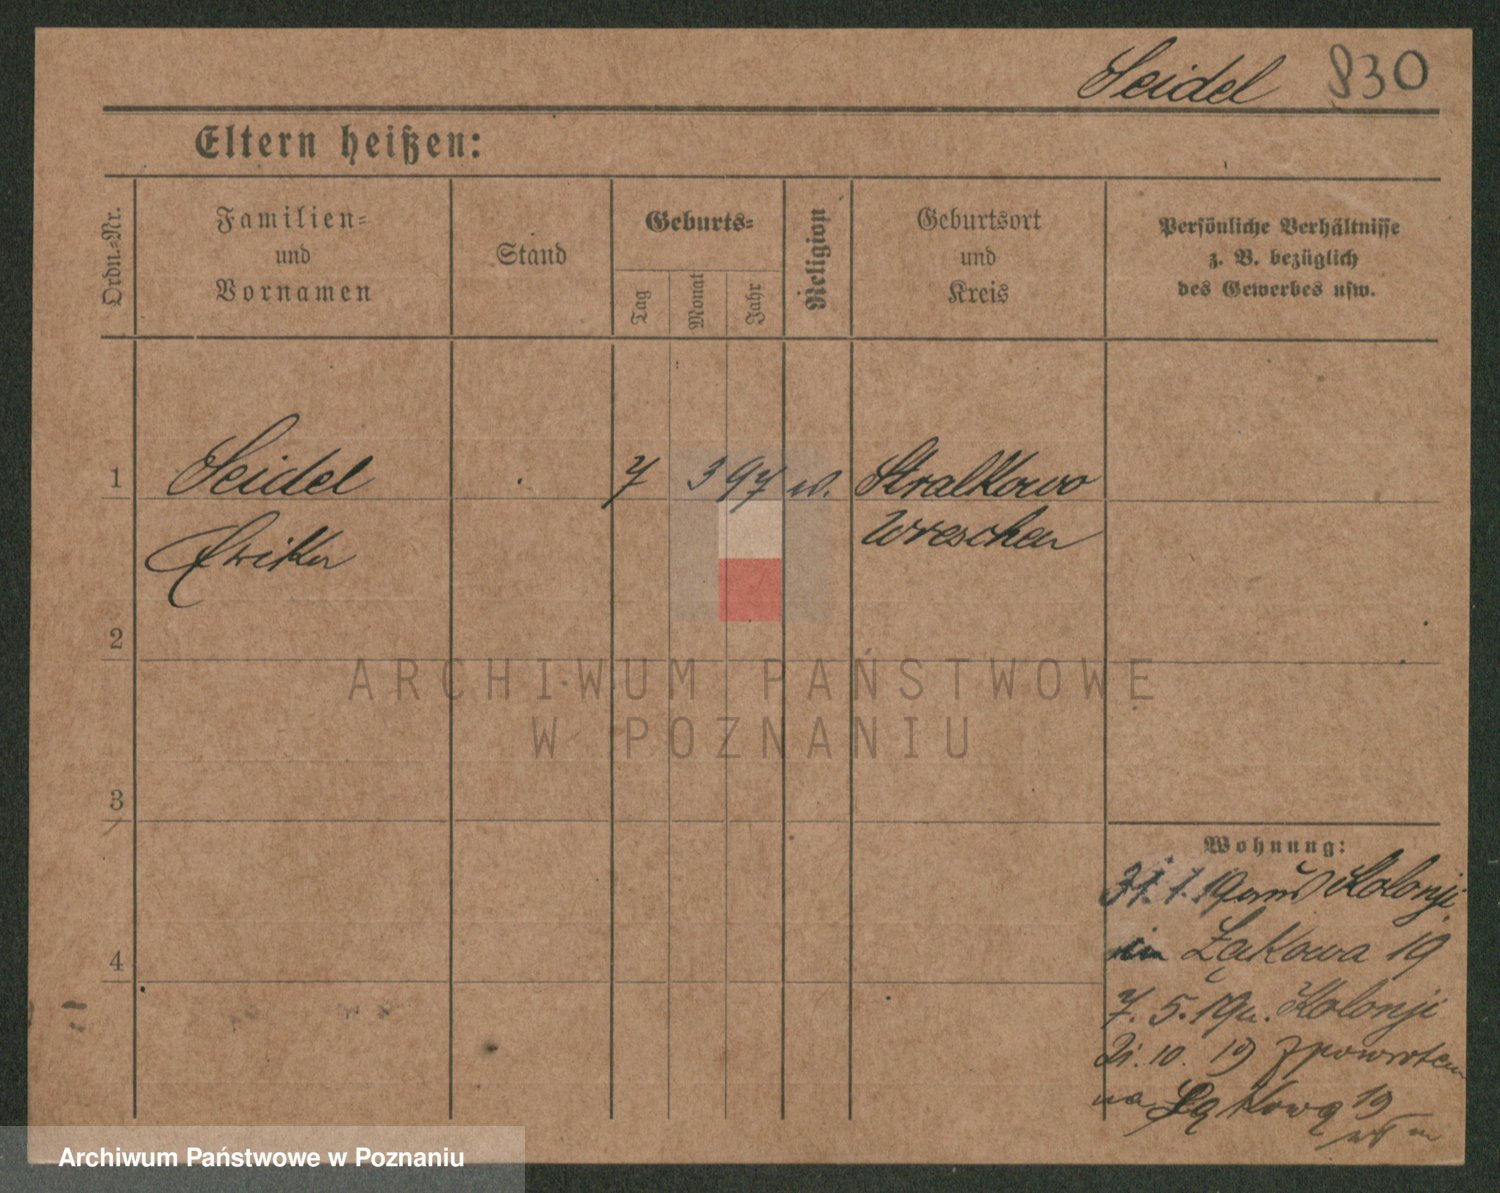 Seidel 830
Eltern heißen:
Ordn.-Nr.
Familien-
und
Vornamen
Stand
Geburts-
Tag
Monat
Jahr
Religion
Geburtsort
und
Kreis
Persönliche Verhältnisse
z. B. bezüglich
des Gewerbes usw.
1 Seidel 7 3 97 Stralkowo
Wreschen
2
3
4
Wohnung:
31.1.19 Kolonji
in Łąkowa 19
7. 5. 19 Kolonji
21. 10. 19 zpowrotem
na Łąkową 19
ARCHIWUM PAŃSTWOWE
W POZNANIU
Archiwum Państwowe w Poznaniu